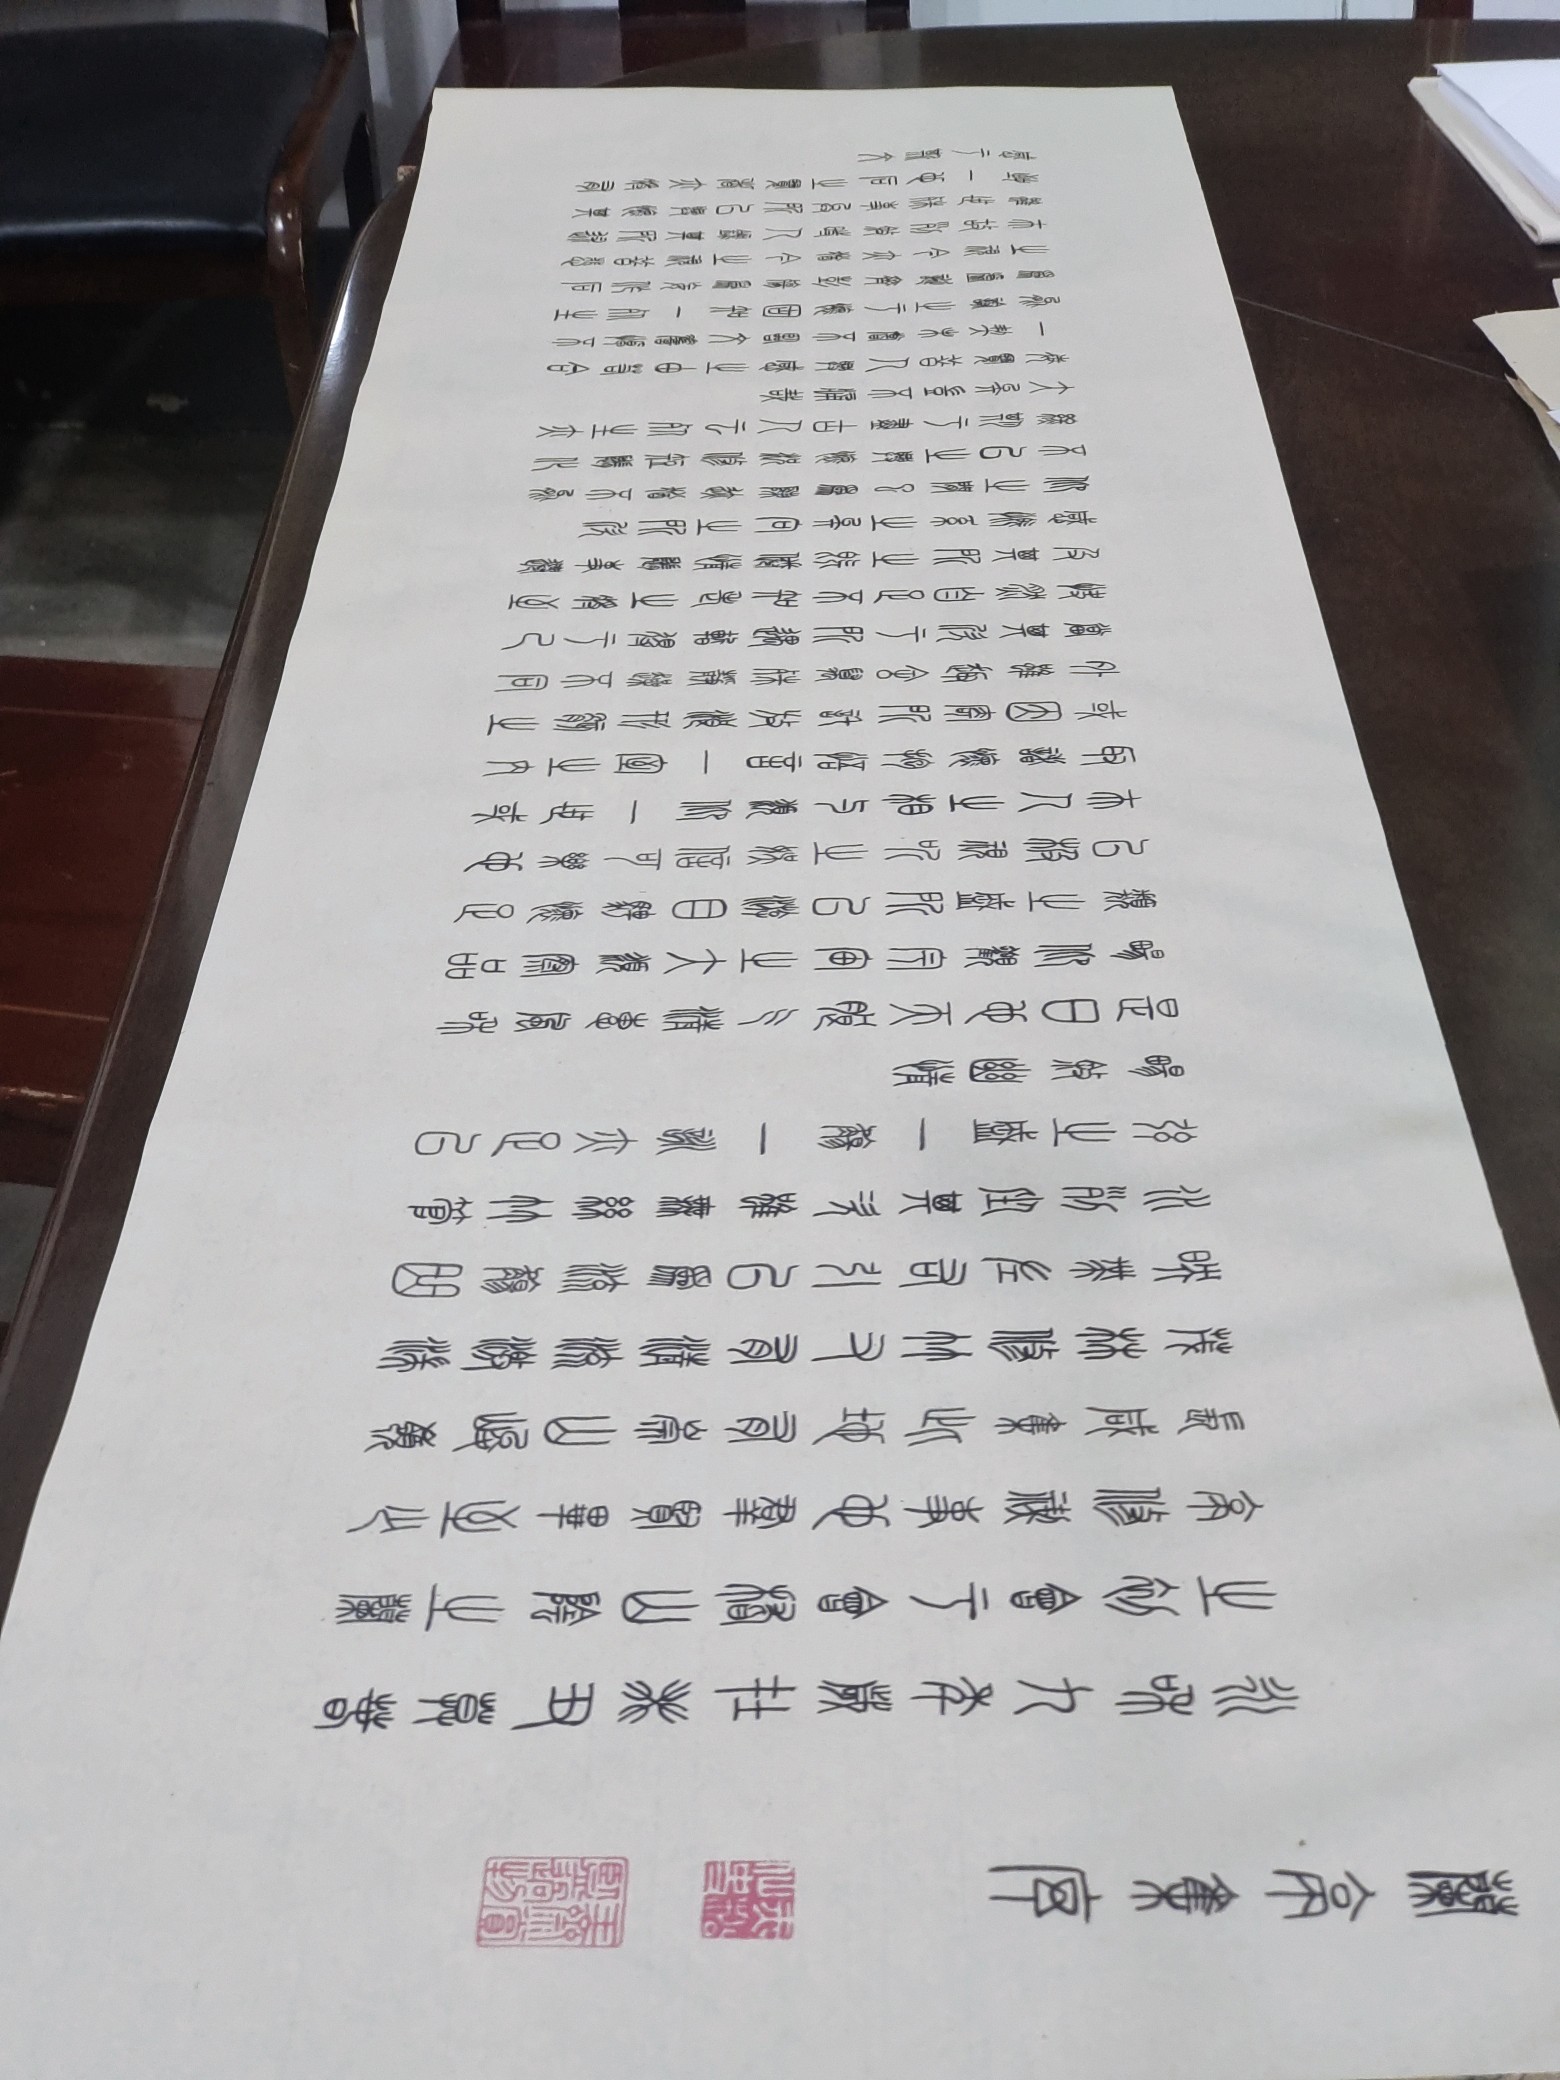 蘭亭集序
永和九年歲在癸丑暮春
之初會于會稽山陰之蘭
亭脩稧事也羣賢畢至少
長咸集此地有崇山峻領
茂林脩竹又有清流激湍
暎帶左右引以為流觴曲
水列坐其次雖無絲竹管
弦之盛一觴一詠亦足以
暢敘幽情
是日也天朗氣清惠風和
暢仰觀宇宙之大俯察品
類之盛所以遊目騁懷足
以極視聽之娛信可樂也
夫人之相與俯仰一世或
取諸懷抱悟言一室之內
或因寄所託放浪形骸之
外雖趣舍萬殊靜躁不同
當其欣于所遇暫得于己
快然自足不知老之將至
及其所之既惓情隨事遷
感慨係之矣向之所欣
仰之閒以為陳跡猶不能
不以之興懷況脩短隨化
終期于盡古人云死生亦
大矣豈不痛哉
每攬昔人興感之由若合
一契未嘗不臨文嗟悼不
能喻之于懷固知一死生
為虛誕齊彭殤為妄作後
之視今亦猶今之視昔悲
夫故列敘時人錄其所述
雖世殊事異所以興懷其
致一也後之覽者亦將有
感于斯文